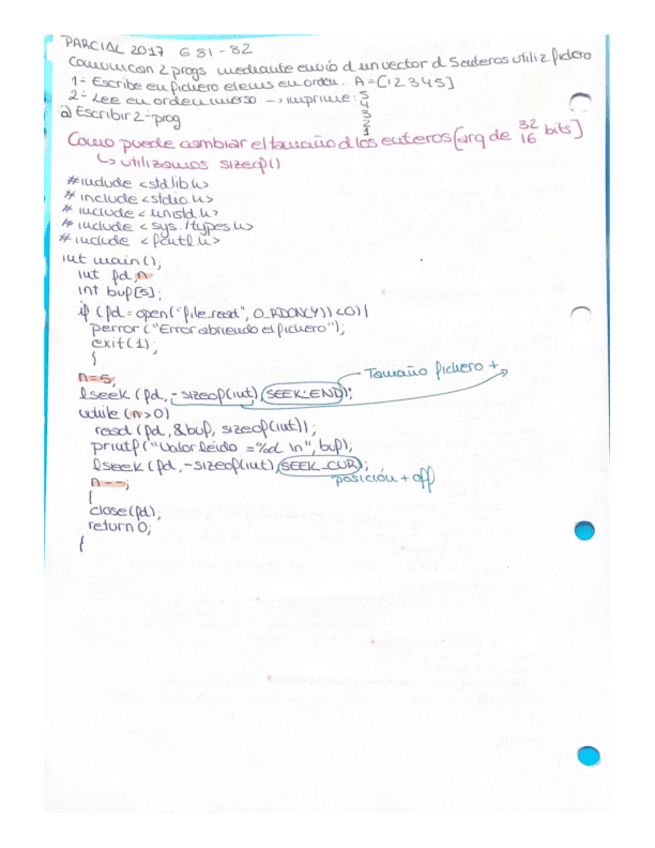 PARCIAL 2017 G 81-82
Comunican 2 progs mediante envío d un vector d 5 enteros utiliz fichero
1º Escribe en fichero elems en orden. A=[1 2 3 4 5]
2º Lee en orden inverso -> imprime: 5
4
3
2
1
a) Escribir 2º prog
Como puede cambiar el tamaño d los enteros [arq de 32 16 bits]
↳ utilizamos sizeof()
#include <stdlib.h>
# include <stdio.h>
# include <unistd.h>
# include <sys/types.h>
# include <fcntl.h>
int main();
int fd, n
int buf[5];
if (fd = open("file.read", O_RDONLY)) <0){
perror("Error abriendo el fichero");
exit(1);
}
n=5;
lseek (fd, -sizeof(int), SEEK_END); Tamaño fichero +
while (n>0)
read (fd, &buf, sizeof(int));
printf("Valor leido =%d \n", buf);
lseek (fd, -sizeof(int), SEEK_CUR);
posición + off
n--;
}
close(fd);
return 0;
}